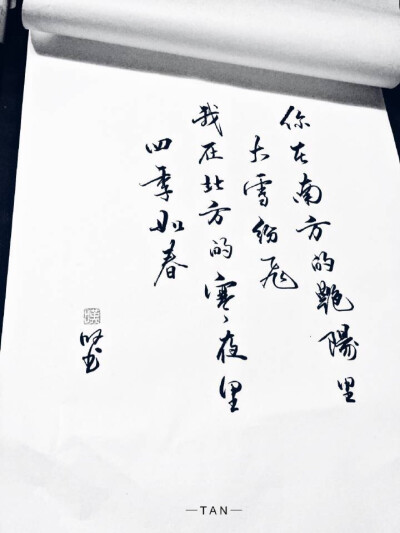 你在南方的艳陽里
大雪纷飞
我在北方的寒夜里
四季如春
—TAN—